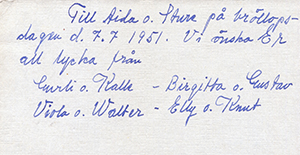 Till Aida o. Sture på bröllops-
dagen d. 7.7 1951. Vi önska Er
all lycka från
Gurli o. Kalle - Birgitta o. Gustav
Viola o. Walter - Elly o. Knut